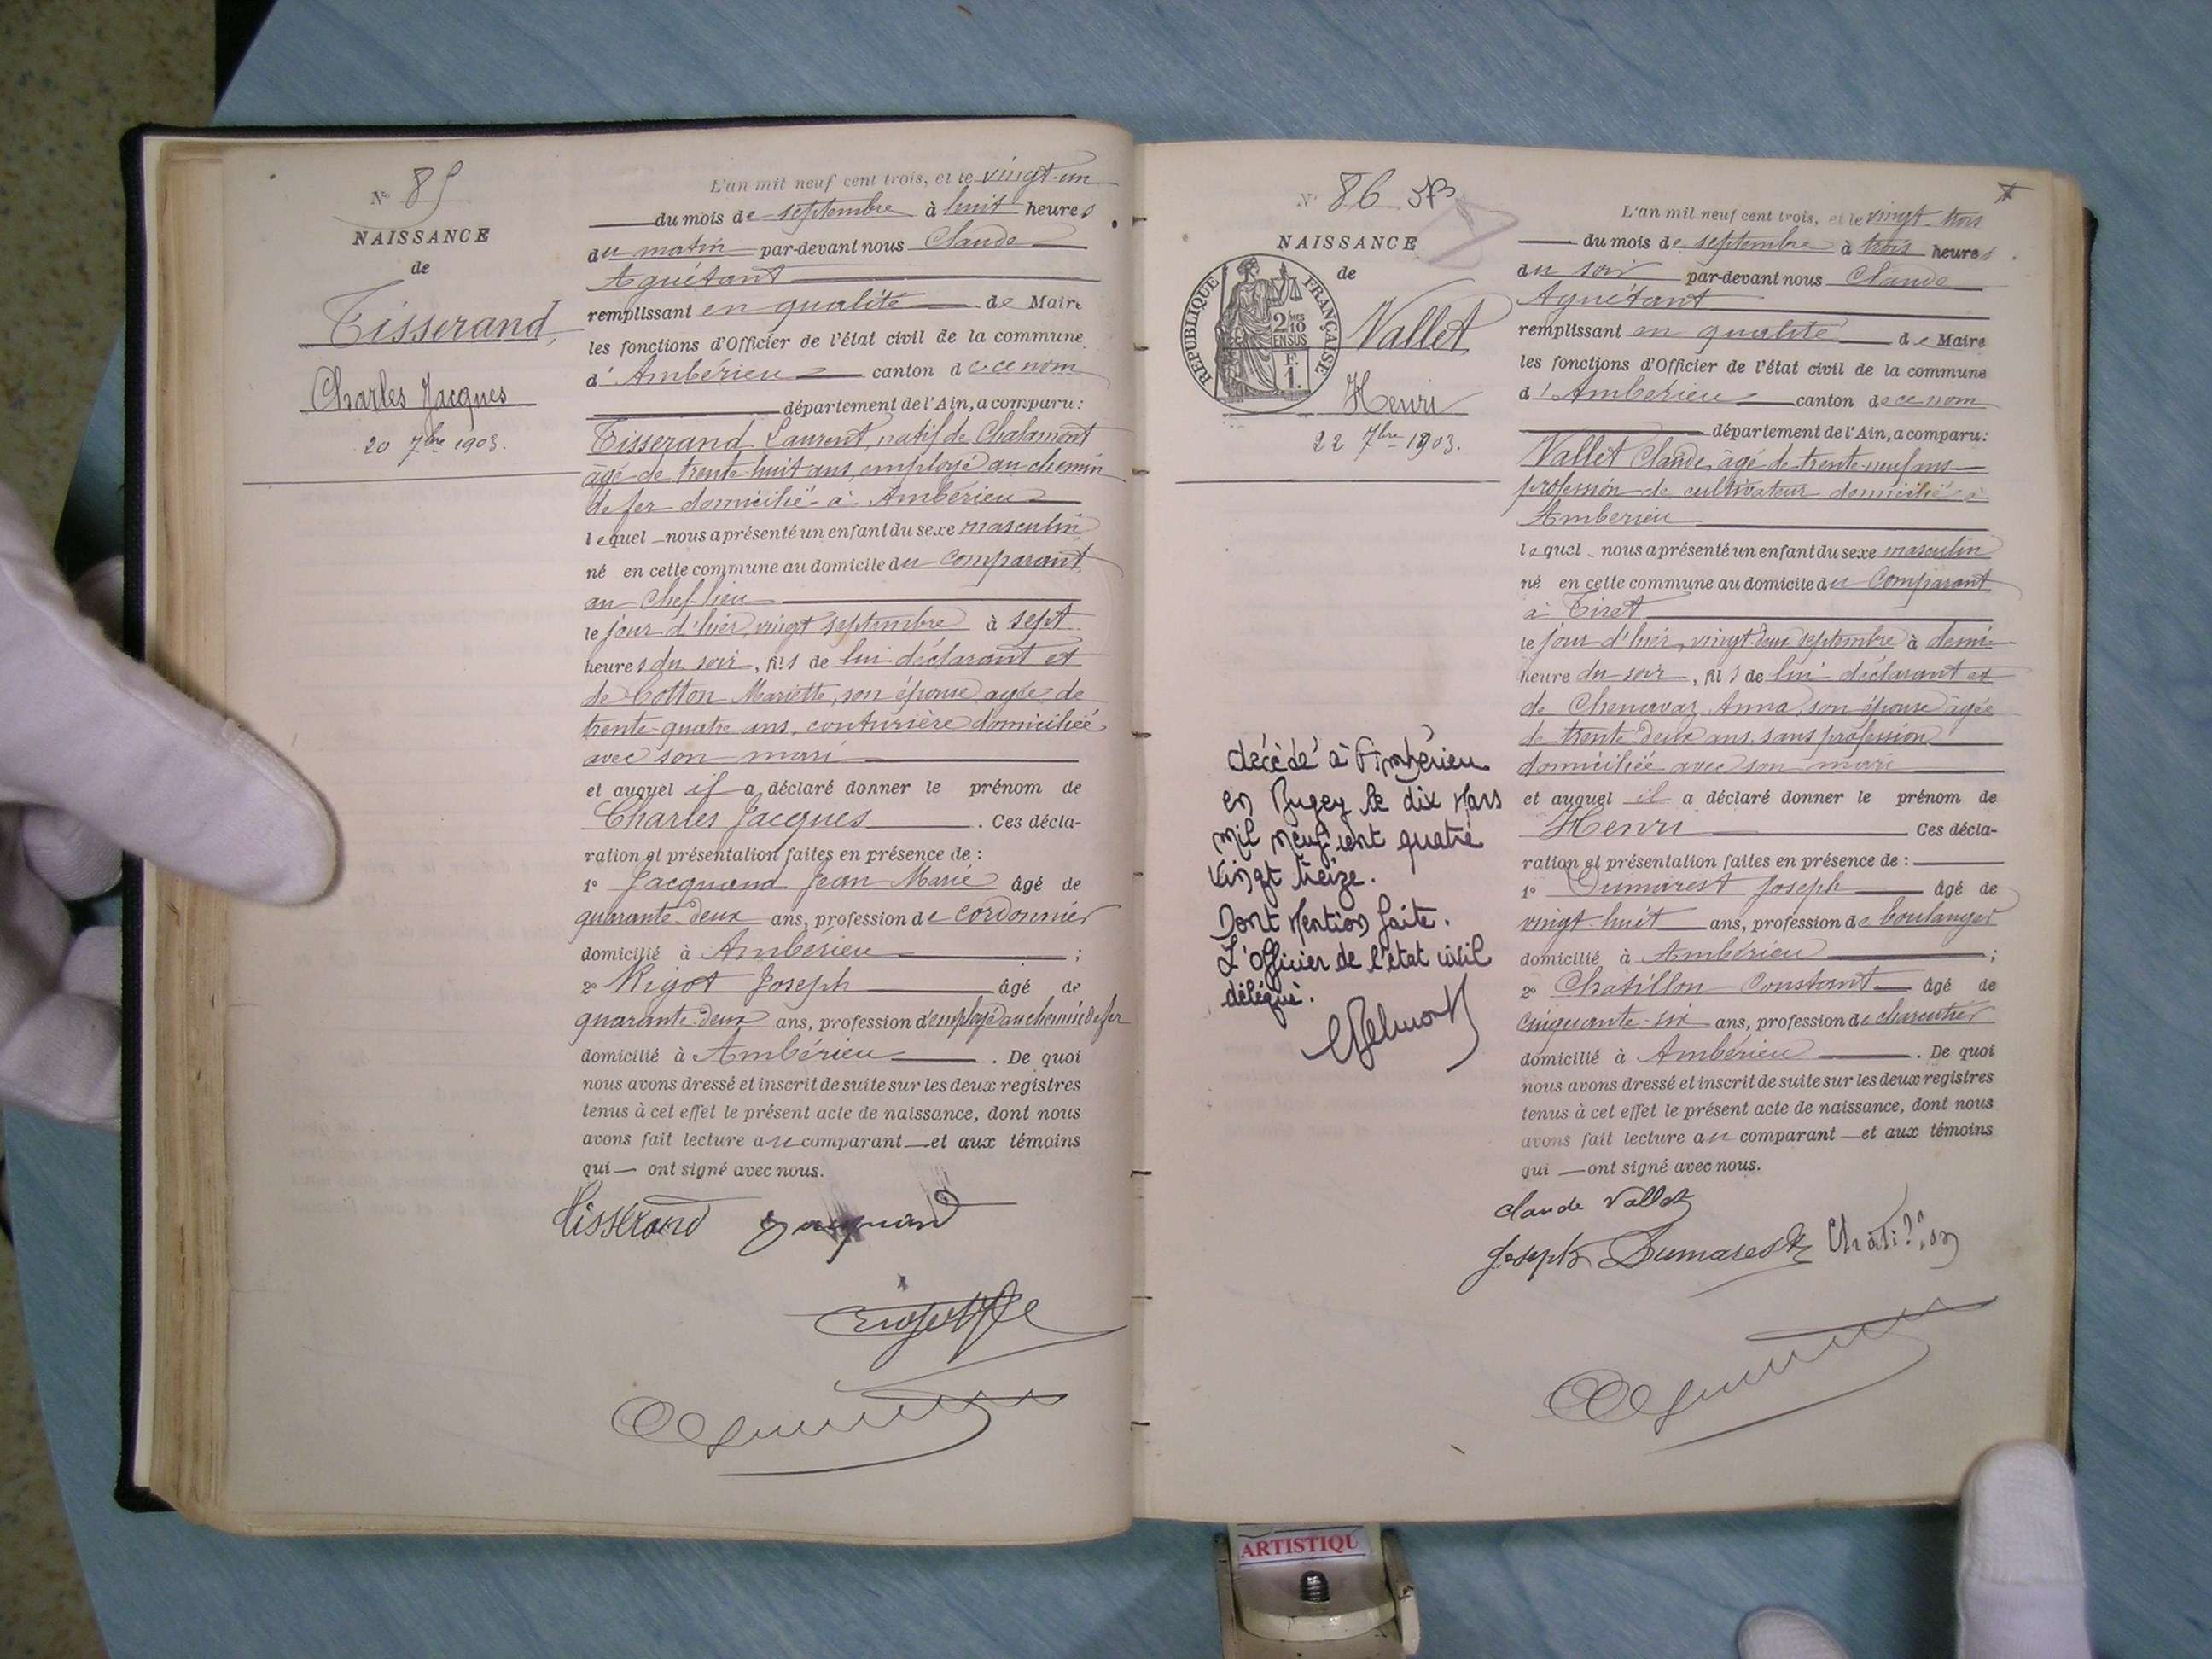 N° 85
NAISSANCE
de
Tisserand,
Charles Jacques
20 7bre 1903.
L'an mil neuf cent trois, et le vingt-un
du mois de septembre à huit heures
du matin par-devant nous Claude
Aguétant
remplissant en qualité de Maire
les fonctions d'Officier de l'état civil de la commune
d'Ambérieu canton de ce nom
département de l'Ain, a comparu:
Tisserand Laurent, natif de Chalamont
âgé de trente-huit ans, employé au chemin
de fer domicilié à Ambérieu
lequel nous a présenté un enfant du sexe masculin
né en cette commune au domicile du comparant
au Chef-lieu
le jour d'hier, vingt septembre à sept
heures du soir, fils de lui déclarant et
de Cotton Mariette, son épouse agée de
trente-quatre ans, couturière domiciliée
avec son mari
et auquel il a déclaré donner le prénom de
Charles Jacques . Ces décla-
ration et présentation faites en présence de :
1° Jacquand Jean Marie âgé de
quarante-deux ans, profession de cordonnier
domicilié à Ambérieu ;
2° Rigot Joseph âgé de
quarante-deux ans, profession d'employé au chemin de fer
domicilié à Ambérieu . De quoi
nous avons dressé et inscrit de suite sur les deux registres
tenus à cet effet le présent acte de naissance, dont nous
avons fait lecture au comparant et aux témoins
qui ont signé avec nous.
Tisserand Jacquand
N° 86
NAISSANCE
de
RÉPUBLIQUE FRANÇAISE
2 10
EN SUS
F.
1.
Vallet
Henri
22 7bre 1903.
décédé à Ambérieu
en Bugey le dix Mars
mil neuf cent quatre
vingt treize.
Dont Mention faite.
L'Officier de l'état civil
délégué.
L'an mil neuf cent trois, et le vingt-trois
du mois de septembre à trois heures
du soir par-devant nous Claude
Aguétant
remplissant en qualité de Maire
les fonctions d'Officier de l'état civil de la commune
d'Ambérieu canton de ce nom
département de l'Ain, a comparu:
Vallet Claude, âgé de trente-neuf ans
profession de cultivateur domicilié à
Ambérieu
lequel nous a présenté un enfant du sexe masculin
né en cette commune au domicile du Comparant
à Tiret
le jour d'hier, vingt-deux septembre à demi-
heure du soir, fils de lui déclarant et
de Chenavaz Anna, son épouse âgée
de trente-deux ans, sans profession
domiciliée avec son mari
et auquel il a déclaré donner le prénom de
Henri Ces décla-
ration et présentation faites en présence de :
1° Dumarest Joseph âgé de
vingt-huit ans, profession de boulanger
domicilié à Ambérieu ;
2° Chatillon Constant âgé de
cinquante-six ans, profession de charcutier
domicilié à Ambérieu . De quoi
nous avons dressé et inscrit de suite sur les deux registres
tenus à cet effet le présent acte de naissance, dont nous
avons fait lecture au comparant et aux témoins
qui ont signé avec nous.
Claude Vallet
Joseph Dumarest Chatillon
ARTISTIQU